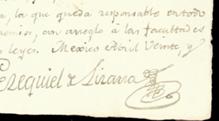 la que queda responsable en todo
con arreglo á las facultades
leyes. Mexico Abril Veinte y
Ezequiel de Lizarza